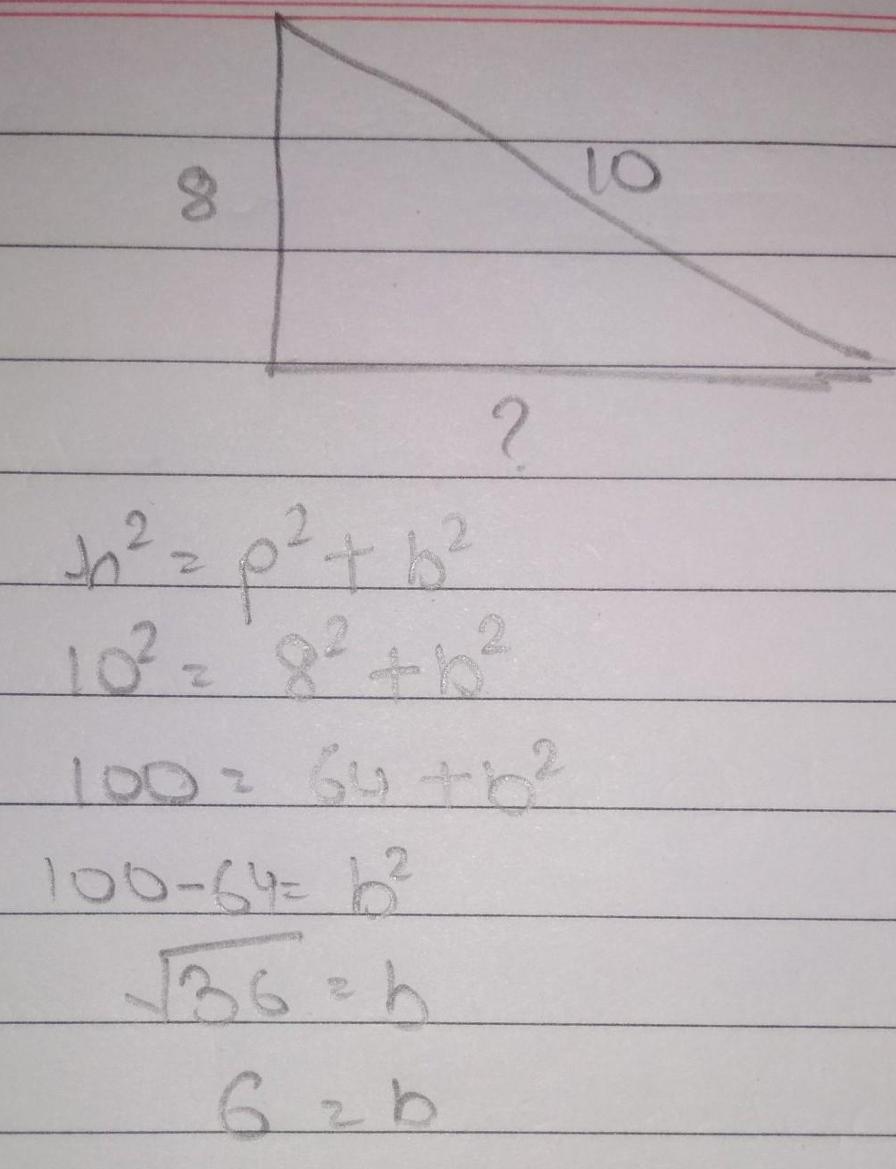 8
10
?
h² = p² + b²
10² = 8² + b²
100 = 64 + b²
100-64= b²
√36 = b
6 = b